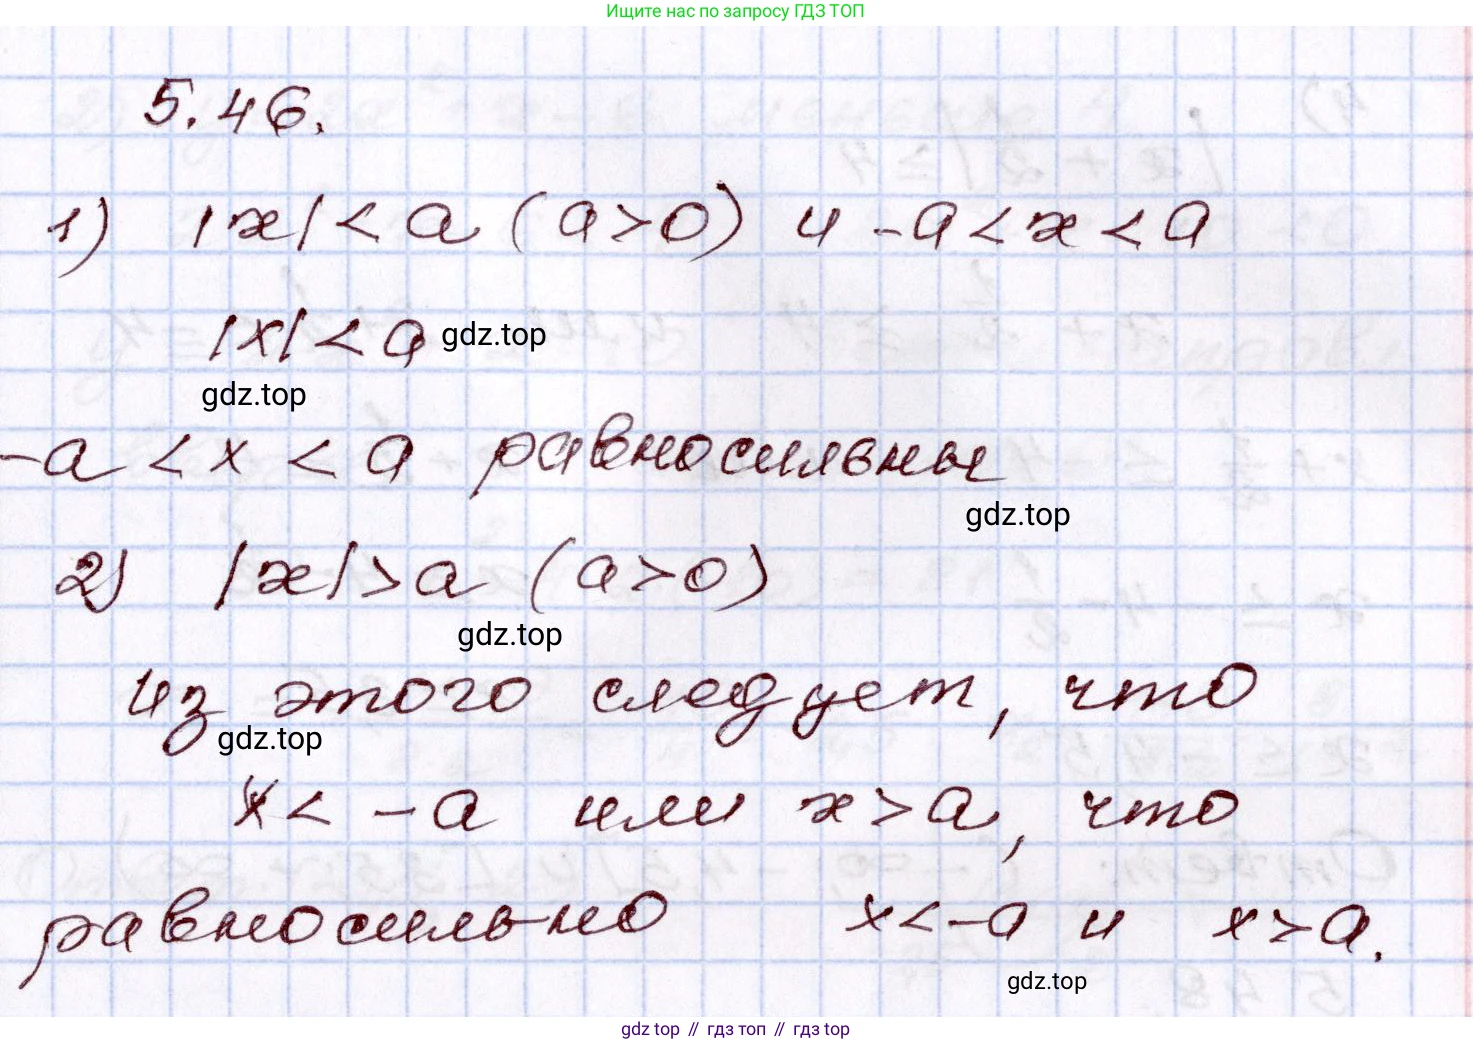 Ищите нас по запросу ГДЗ ТОП
5.46.
1) |x| < a (a>0) и -a < x < a
|x| < a gdz.top
gdz.top
-a < x < a равносильны
gdz.top
2) |x| > a (a>0)
gdz.top
Из этого следует, что
gdz.top
x < -a или x > a, что
равносильно x < -a и x > a.
gdz.top
gdz top // гдз топ // гдз top